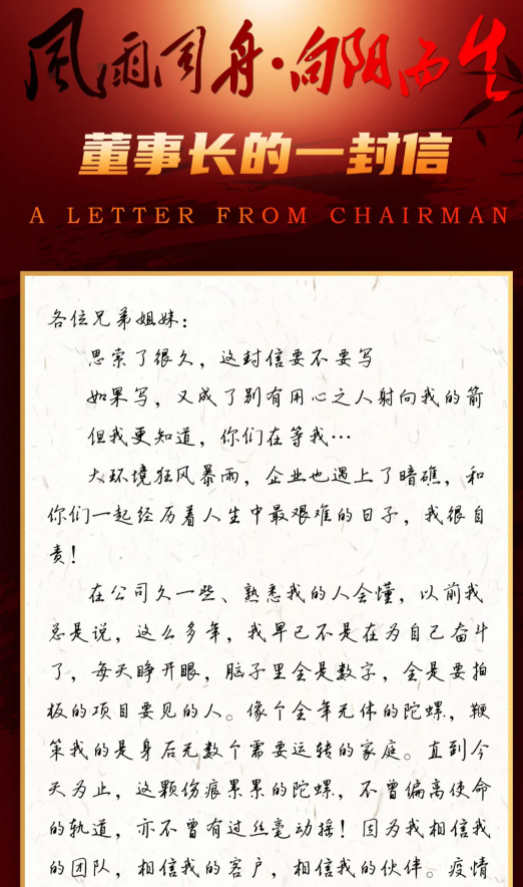 風雨同舟·向阳而生
董事长的一封信
A LETTER FROM CHAIRMAN
各位兄弟姐妹：
思索了很久，这封信要不要写
如果写，又成了别有用心之人射向我的箭
但我更知道，你们在等我…
大环境狂风暴雨，企业也遇上了暗礁，和
你们一起经历着人生中最艰难的日子，我很自
责！
在公司久一些、熟悉我的人会懂，以前我
总是说，这么多年，我早已不是在为自己奋斗
了，每天睁开眼，脑子里全是数字，全是要拍
板的项目要见的人。像个全年无休的陀螺，鞭
策我的是身后无数个需要运转的家庭。直到今
天为止，这颗伤痕累累的陀螺，不曾偏离使命
的轨道，亦不曾有过丝毫动摇！因为我相信我
的团队，相信我的客户，相信我的伙伴。疫情